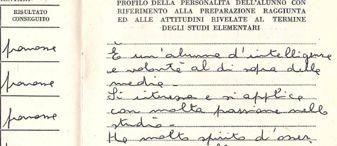 RISULTATO
CONSEGUITO
PROFILO DELLA PERSONALITÀ DELL'ALUNNO CON
RIFERIMENTO ALLA PREPARAZIONE RAGGIUNTA
ED ALLE ATTITUDINI RIVELATE AL TERMINE
DEGLI STUDI ELEMENTARI
È un'alunna d'intelligenza
e volontà al di sopra della
media.
Si interessa e si applica
con molta passione nello
studio.
Ha molto spirito d'osser